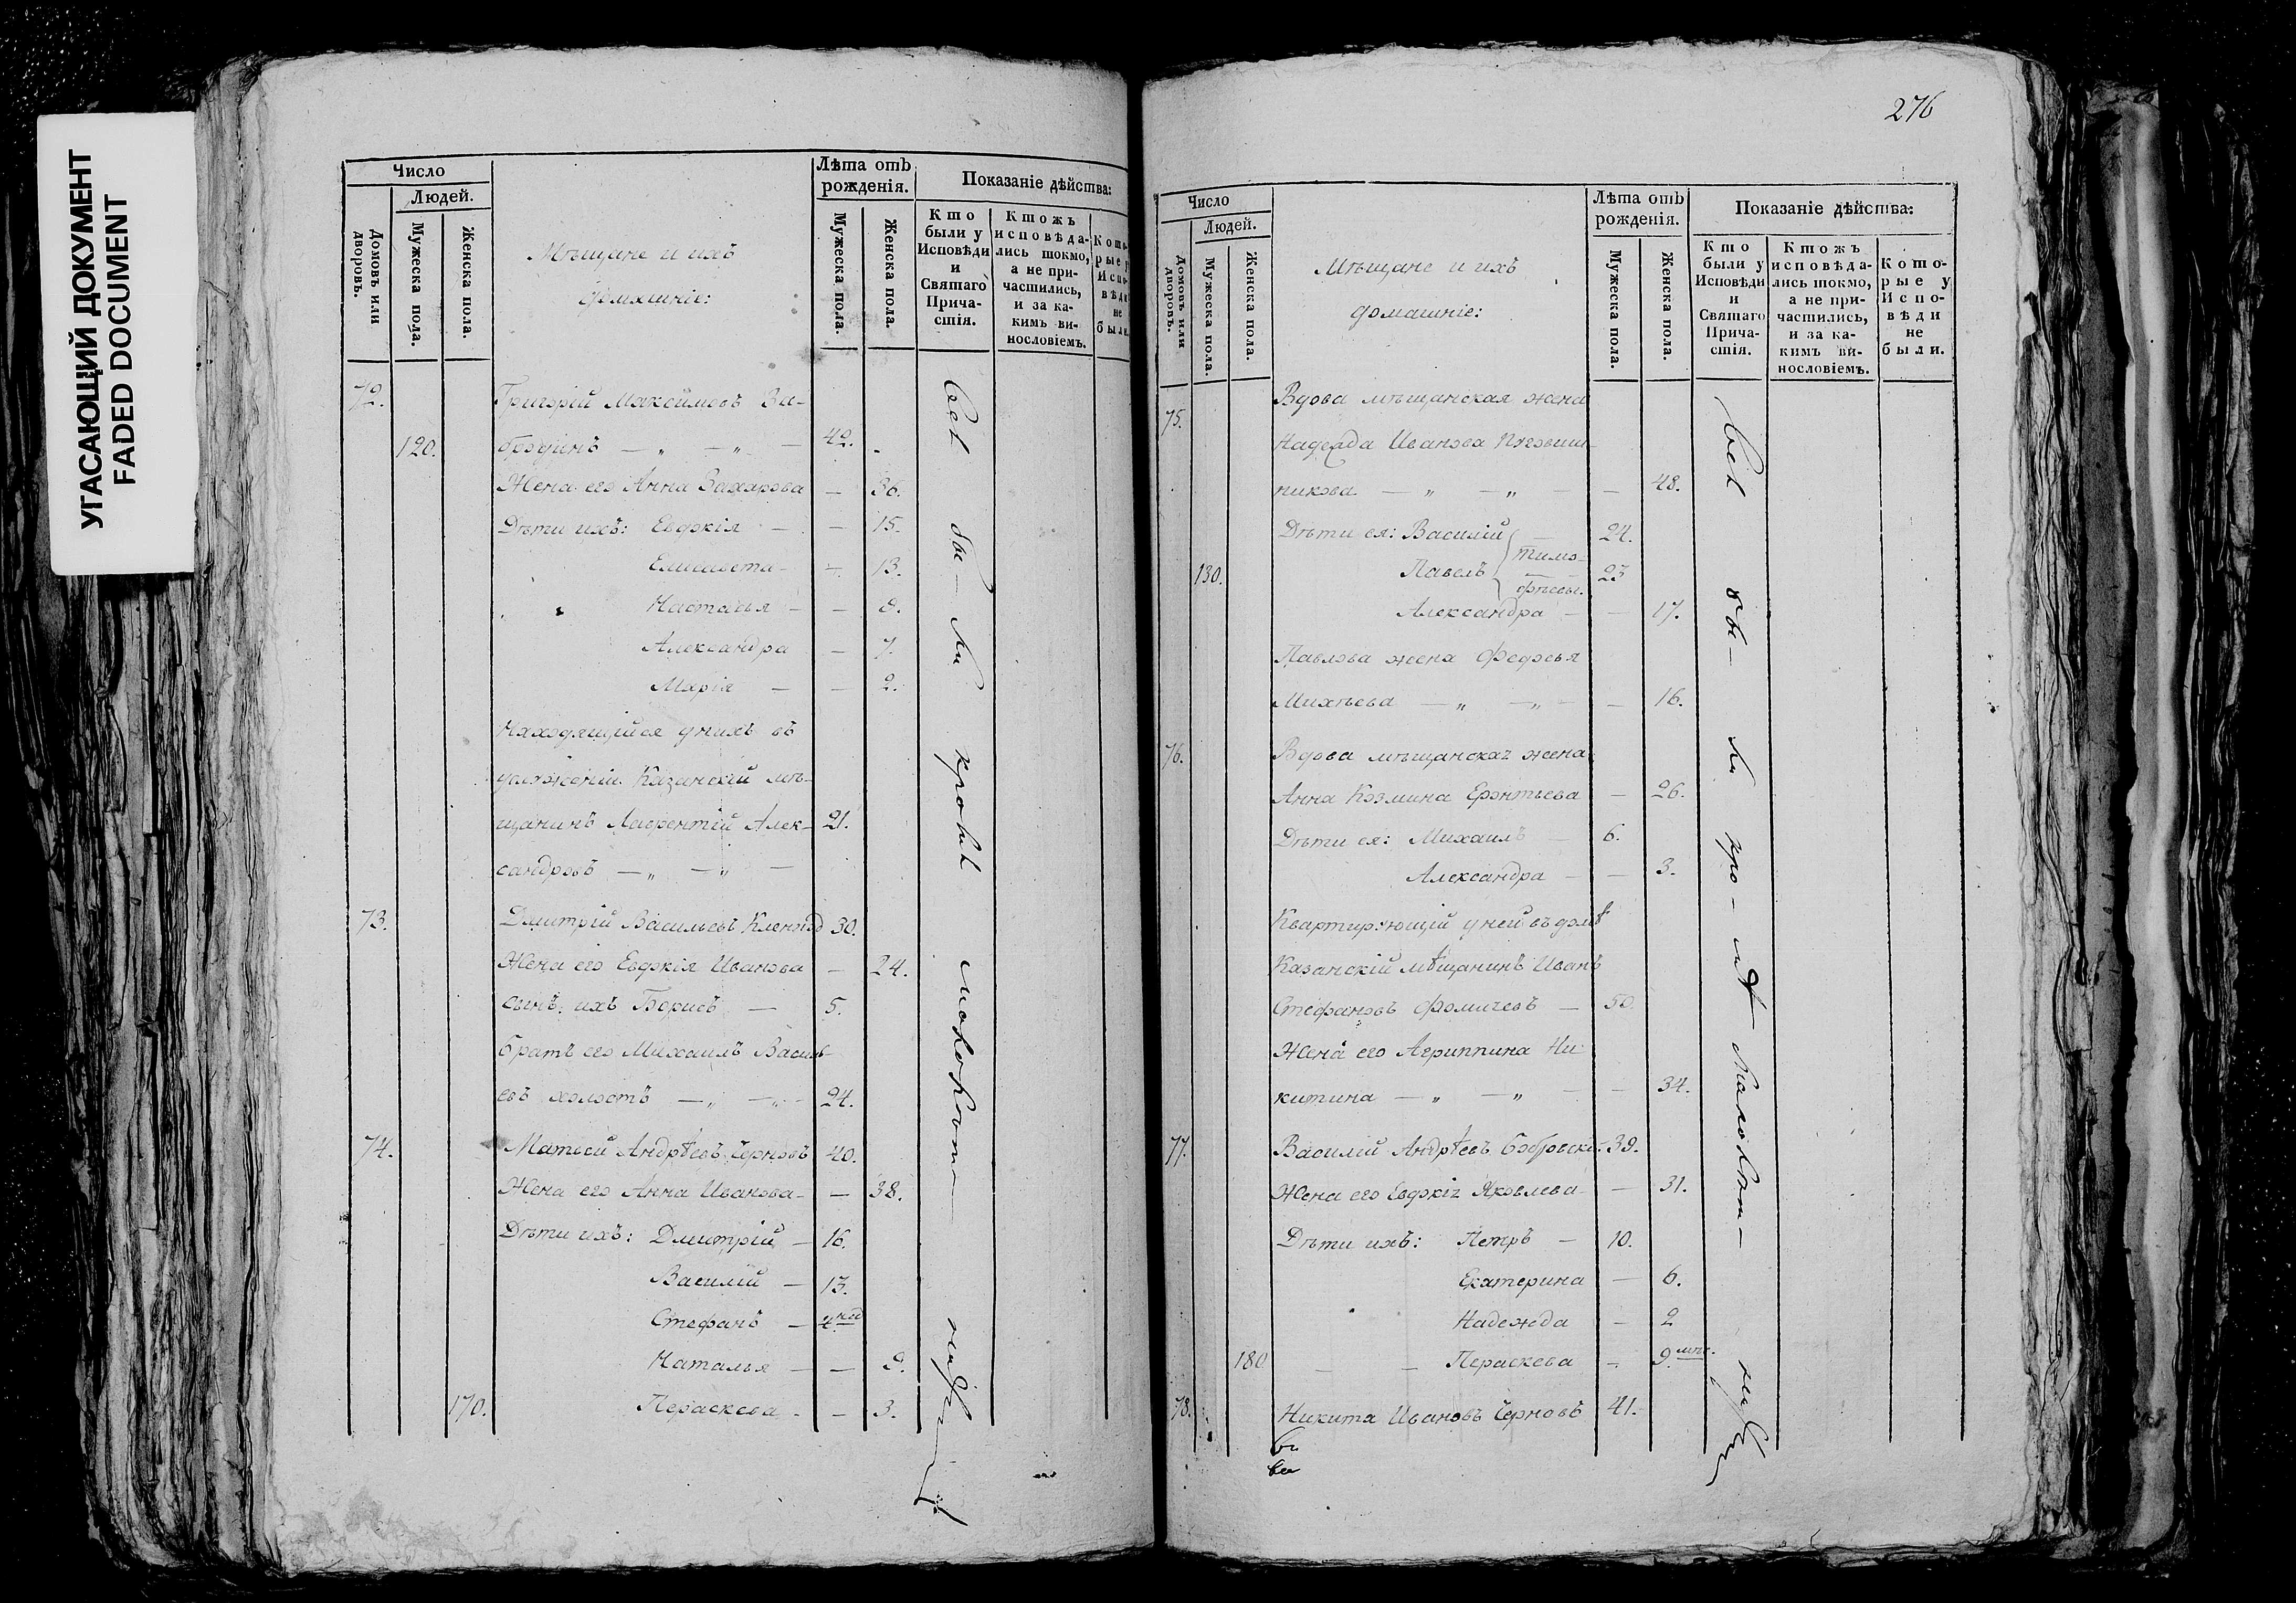 УГАСАЮЩИЙ ДОКУМЕНТ
FADED DOCUMENT
Число
Людей.
Домовъ или дворовъ.
Мужеска пола.
Женска пола.
Мѣщане и ихъ
домашніе:
Лѣта отъ
рожденія.
Мужеска пола.
Женска пола.
Показаніе дѣйства:
Кто
были у
Исповѣди
и
Святаго
Прича-
стія.
Ктожъ
исповѣда-
лись токмо,
а не при-
частились,
и за ка-
кимъ ви-
нословіемъ.
Кото-
рые у
Испо-
вѣди
не
были.
72.
Григорій Максимовъ За-
120. бродинъ — „ — „ — 42.
Жена его Анна Захарова — 36.
Дѣти ихъ: Евдокія — — 15.
Елисавета — — 13.
Настасья — — 9.
Александра — 7.
Марія — — 2.
Находящійся у нихъ въ
услуженіи Казанскій мѣ-
щанинъ Лаврентій Алек- 21.
сандровъ — „ — „ —
73. Дмитрій Васильевъ 30.
Жена его Евдокія Иванова — 24.
сынъ ихъ Борисъ — 5.
братъ его Михаилъ Василь-
евъ холостъ — „ — „ — 24.
74. Матвей Андрѣевъ Черновъ 40.
Жена его Анна Иванова — — 38.
Дѣти ихъ: Дмитрій — 16.
Василій — 13.
Стефанъ —
Наталья — — 9.
170. Параскева — — 3.
всѣ бы — ли кромѣ малолѣтн —
276
Число
Людей.
Домовъ или дворовъ.
Мужеска пола.
Женска пола.
Мѣщане и ихъ
домашніе:
Лѣта отъ
рожденія.
Мужеска пола.
Женска пола.
Показаніе дѣйства:
Кто
были у
Исповѣди
и
Святаго
Прича-
стія.
Ктожъ
исповѣда-
лись токмо,
а не при-
частились,
и за ка-
кимъ ви-
нословіемъ.
Кото-
рые у
Испо-
вѣди
не
были.
75. Вдова мѣщанская жена
Надежда Иванова Пуговиш-
никова — „ — „ — — 48.
Дѣти ея: Василій — 24.
Тимо-
130. Павелъ 23
ѳѣевы.
Александра — — 17.
Павлова жена Ѳедосья
Михѣева — „ — „ — — 16.
76. Вдова мѣщанская жена
Анна Козмина Еронтьева — 26.
Дѣти ея: Михаилъ — 6.
Александра — — 3.
Квартирующій у ней въ домѣ
Казанскій мѣщанинъ Иванъ
Стефановъ Ѳомичевъ — 50.
Жена его Агриппина Ни-
китина — „ — „ — — 34.
77. Василій Андрѣевъ Бобровскі. 39.
Жена его Евдокія Яковлева — — 31.
Дѣти ихъ: Петръ — 10.
Екатерина — 6.
Надежда — 2
180 Параскева — 9. мѣс.
78. Никита Ивановъ Черновъ 41.
всѣ бы — ли кро — мѣ малолѣтн —